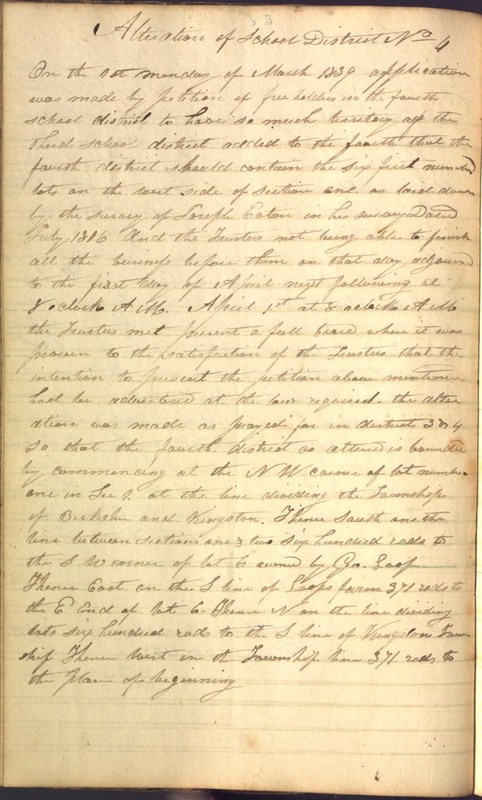 83
Alteration of School District No 4
On the 1st monday of March 1839 application
was made by petition of freeholders in the fourth
school district to have so much territory of the
third school district added to the fourth that the
fourth district should contain the six first number
lots on the west side of section one as laid down
by the survey of Joseph Eaton in his survey Dated
July 1816 And the Trustees not being able to finish
all the business before them on that day adjourned
to the first day of April next following at
8 oclock A M. April 1st at 8 oclock A M
the Trustees met present a full board when it was
proven to the satisfaction of the Trustees that the
intention to present the petition above mentioned
had be advertised at the law required. the alter
ation was made as prayed for in districts 3 & 4
so that the fourth district as altered is bounded
by commencing at the N W corner of lot number
one in Sec 1. at the line dividing the Townships
of Berkshire and Kingston. Thence South on the
line between sections one & two six hundred rods to
the S W corner of lot 6 owned by Geo. Loof
Thence East on the S line of Loofs farm 371 rods to
the E End of lot 6. Thence N on the line dividing
lots six hundred rods to the S line of Kingston Town
ship Thence West on the Township line 371 rods to
the place of beginning